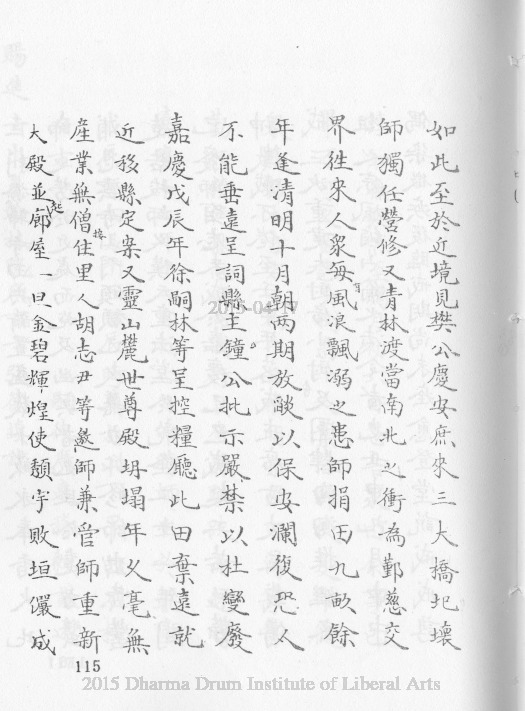 如此至於近境見樊公慶安庶來三大橋圯壞
師獨任營修又青林渡當南北之衝為鄞慈交
界徃來人衆每風浪飄溺之患師捐田九畝餘
有
年逢清明十月朝兩期放燄以保安瀾復恐人
不能垂遠呈詞縣主鐘公批示嚴禁以杜變廢
嘉慶戊辰年徐嗣林等呈控糧廳此田棄遠就
近移縣定案又靈山麓世尊殿坍塌年久毫無
產業無僧住里人胡志尹等邀師兼管師重新
持
大殿並廊屋一旦金碧輝煌使頹宇敗垣儼成
起
115
2015-04-17
2015 Dharma Drum Institute of Liberal Arts